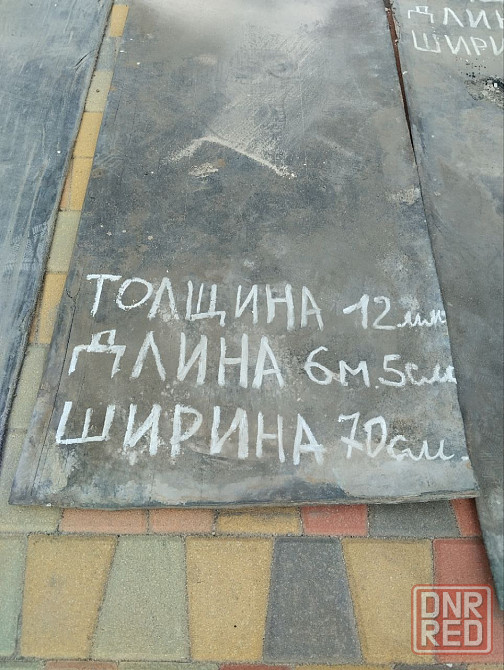 ДЛИН
ШИРИ
ТОЛЩИНА 12мм
ДЛИНА 6м 5см
ШИРИНА 70см.
DNR
RED